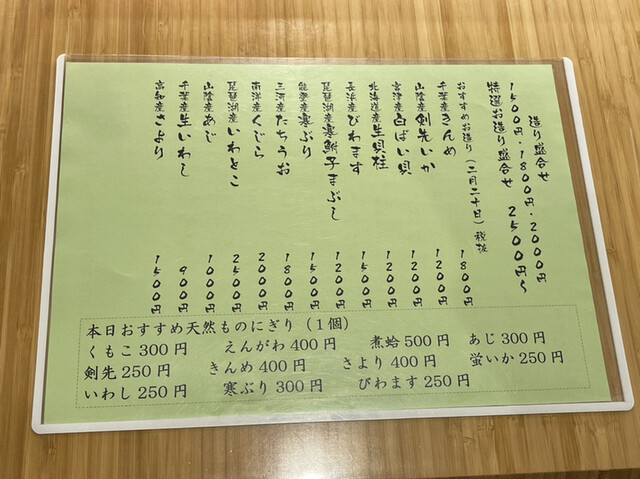 造り盛合せ
1500円・1800円・2000円
特選お造り盛合せ 2500円〜
おすすめお造り(二月二十日)税抜
千葉産きんめ 1800円
山陰産剣先いか 1200円
宮津産白ばい貝 1200円
北海道産生貝柱 1200円
長浜産びわます 1500円
琵琶湖産寒鮒子まぶし 1200円
能登産寒ぶり 1500円
三河産たちうお 1800円
南洋産くじら 2000円
琵琶湖産いわとこ 2500円
山陰産あじ 1000円
千葉産生いわし 900円
高知産さより 1500円
本日おすすめ天然ものにぎり(1個)
くもこ 300円 えんがわ 400円 煮蛤 500円 あじ 300円
剣先 250円 きんめ 400円 さより 400円 蛍いか 250円
いわし 250円 寒ぶり 300円 びわます 250円